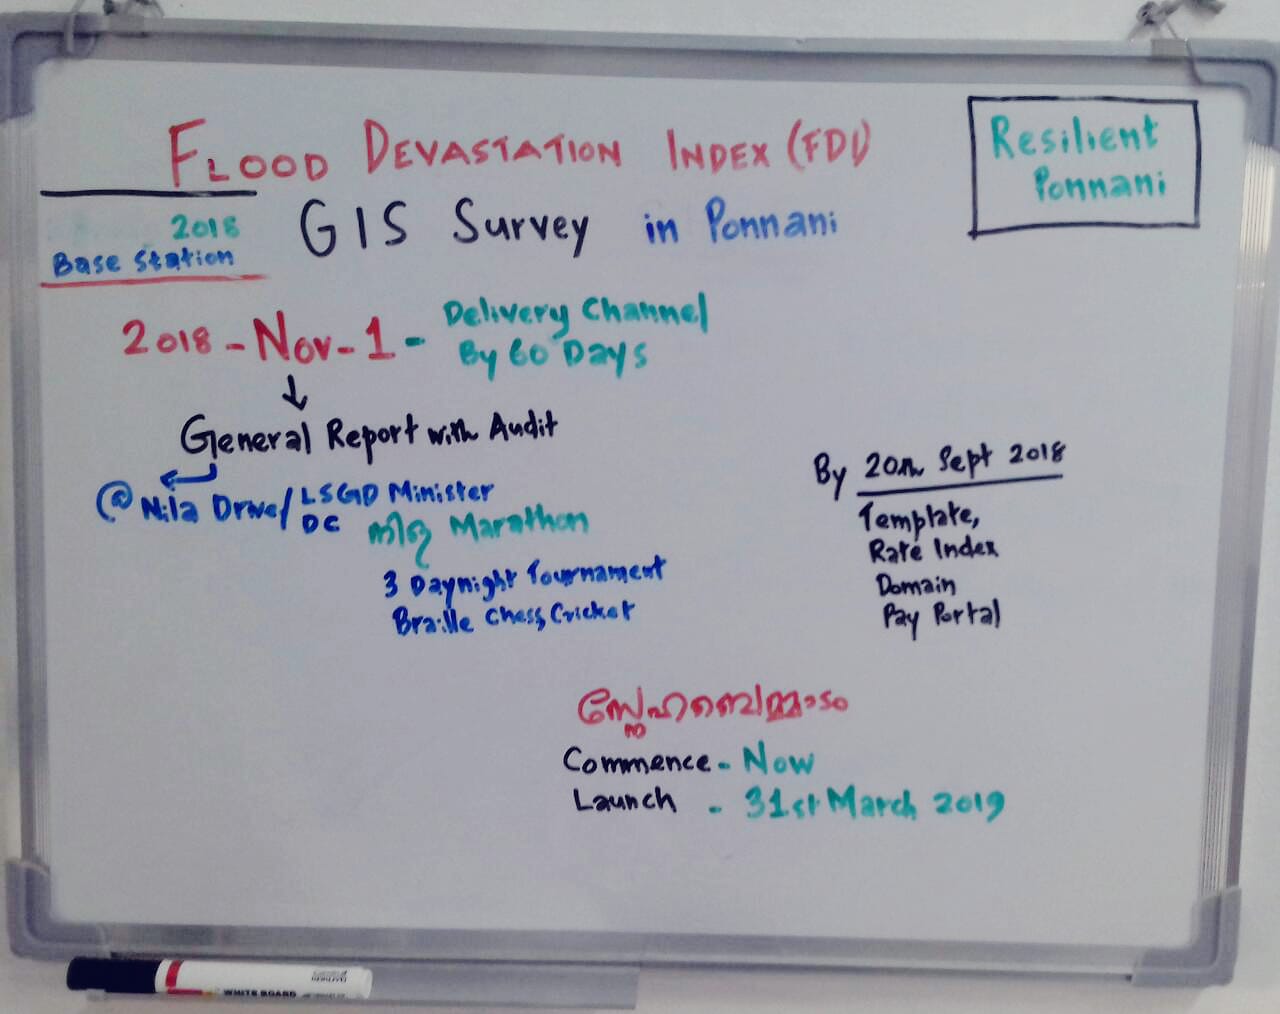 FLOOD DEVASTATION INDEX (FDI)
Resilient
Ponnani
2018
Base Station
GIS Survey in Ponnani
2018 - Nov - 1 - Delivery Channel
By 60 Days
General Report with Audit
@ Nila Drive/ LSGD Minister
DC
നിള Marathon
3 Daynight Tournament
Braille Chess, Cricket
By 20th Sept 2018
Template,
Rate Index
Domain
Pay Portal
Commence - Now
Launch - 31st March 2019
WHITE BOARD